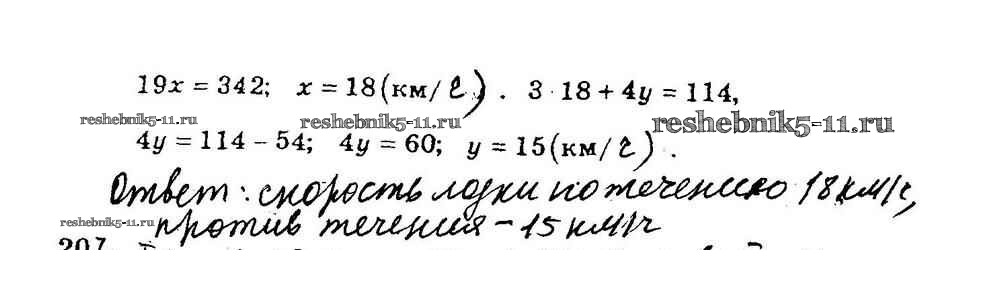 19x = 342; x = 18 (км/ч). 3 · 18 + 4y = 114,
reshebnik5-11.ru reshebnik5-11.ru reshebnik5-11.ru
4y = 114 – 54; 4y = 60; y = 15 (км/ч).
Ответ: скорость лодки по течению 18 км/ч,
reshebnik5-11.ru против течения – 15 км/ч
207